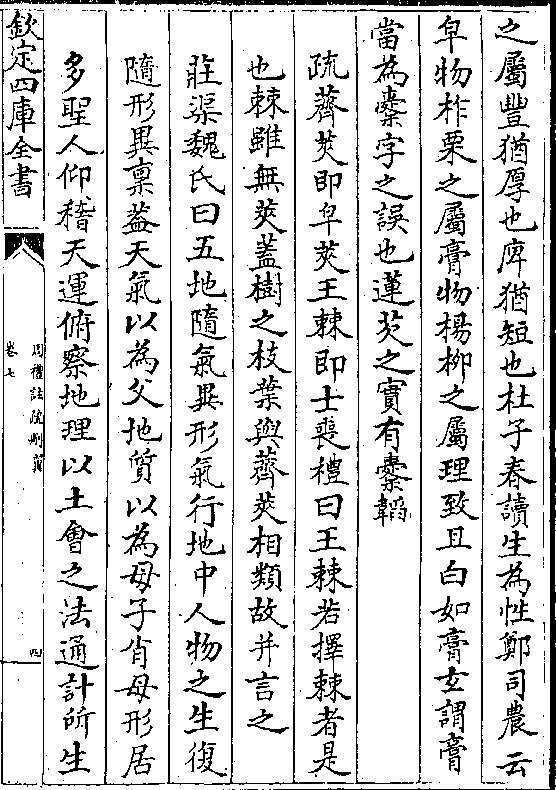 之屬豐猶厚也庳猶短也杜子春讀生為性鄭司農云
皁物柞栗之屬膏物楊柳之屬理致且白如膏玄謂膏
當為櫜字之誤也蓮芡之實有櫜韜
疏薺莢即皁莢王棘即士喪禮曰王棘若擇棘者是
也棘雖無莢蓋樹之枝葉與薺莢相類故并言之
莊渠魏氏曰五地隨氣異形氣行地中人物之生復
隨形異禀葢天氣以為父地質以為母子肖母形居
多聖人仰稽天運俯察地理以土會之法通計所生
欽定四庫全書
周禮註疏刪翼
卷七
四